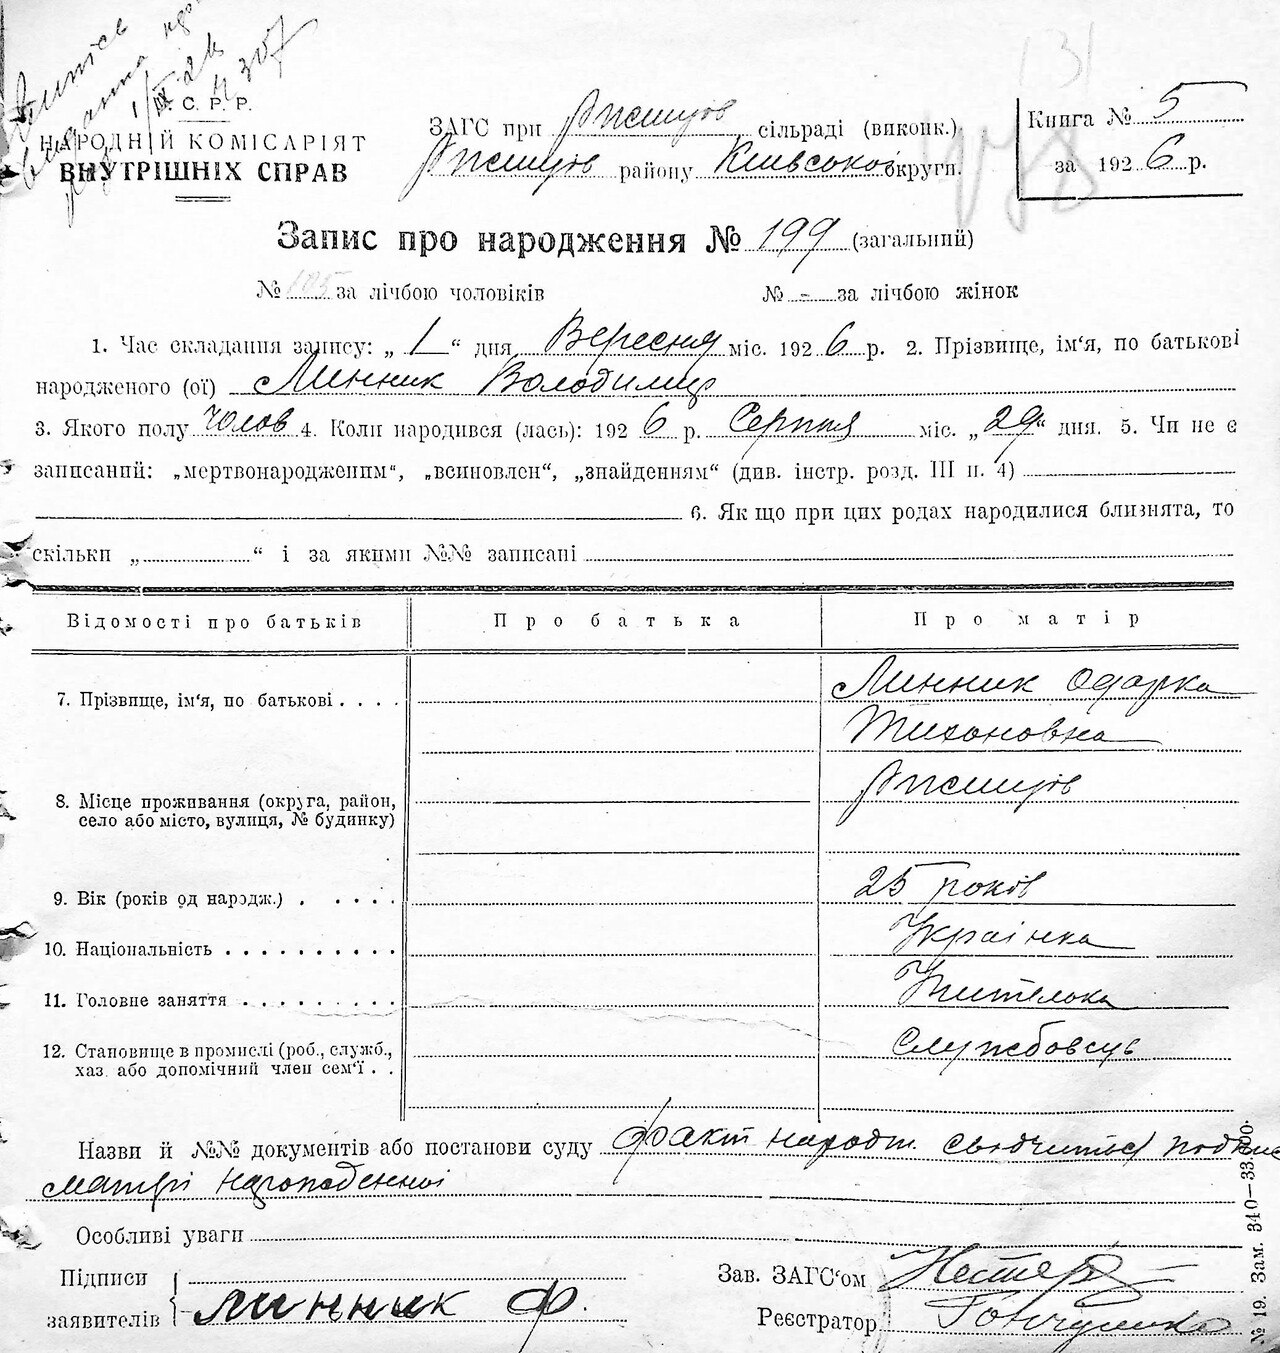 Випись
С. Р. Р.
НАРОДНІЙ КОМІСАРІЯТ
ВНУТРІШНІХ СПРАВ
ЗАГС при Ржищів сільраді (виконк.)
Ржищів району Київської округи.
Книга № 5
за 1926 р.
Запис про народження № 199 (загальний)
№ 105 за лічбою чоловіків № - за лічбою жінок
1. Час складання запису: „1“ дня Вересня міс. 1926 р. 2. Прізвище, ім‘я, по батькові
народженого (ої) Линник Володимир
3. Якого полу Чолов 4. Коли народився (лась): 1926 р. Серпня міс. „29“ дня. 5. Чи не є
записаний: „мертвонародженим“, „всиновлен“, „знайденням“ (див. інстр. розд. III п. 4)
6. Як що при цих родах народилися близнята, то
скільки „ “ і за якими №№ записані
Відомості про батьків Про батька Про матір
7. Прізвище, ім‘я, по батькові . . . . Линник Одарка
Тихоновна
8. Місце проживання (округа, район, Ржищів
село або місто, вулиця, № будинку)
9. Вік (років од народж.) . . . . . 25 років
10. Національність . . . . . . . . . . Українка
11. Головне заняття . . . . . . . . . Учителька
12. Становище в промислі (роб., служб.,
хаз. або допомічний член сем‘ї . . Службовець
Назви й №№ документів або постанови суду факт народж. свідчиться
матері
Особливі уваги
Підписи
заявителів Линник О.
Зав. ЗАГС‘ом
Реєстратор
№ 19. Зам. 340—33.